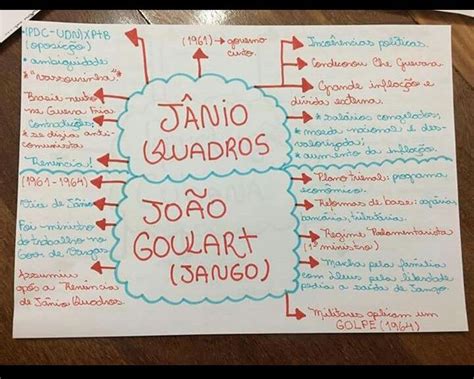 *(PDC-UDN)XPTB
(oposição)
* ambiguidade
* "varrourinha"
Brasil neutro
na Guerra Fria.
Contradições:
* se dizia anti-
comunista
Renúncia!
(1961) → governo
curto.
JÂNIO
QUADROS
Incoerências políticas.
Condecorou Che Guevara
Grande inflação e
dívida externa.
* salários congelados;
* moeda nacional é des-
valorizada;
* aumento da inflação.
(1961-1964)
Vice de Jânio
Foi ministro
do trabalho no
Gov. de Vargas
Assumiu
após a Renúncia
de Jânio Quadros.
JOÃO
GOULART
(JANGO)
Plano trienal: programa
econômico.
Reformas de base: agrária,
bancária, tributária.
Regime Parlamentarista
(1º ministro)
Marcha pela família
com Deus pela liberdade
pedia a saída de Jango.
Militares aplicam um
GOLPE (1964)